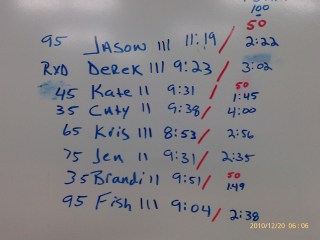 100
50
95 Jason III 11:19 / 2:22
RXD Derek III 9:23 / 3:02
50
45 Kate II 9:31 / 1:45
35 Cnty II 9:38 / 4:00
65 Kris III 8:53 / 2:56
75 Jen II 9:31 / 2:35
50
35 Brandi II 9:51 / 1:49
95 Fish III 9:04 / 2:38
2010/12/20 06:06